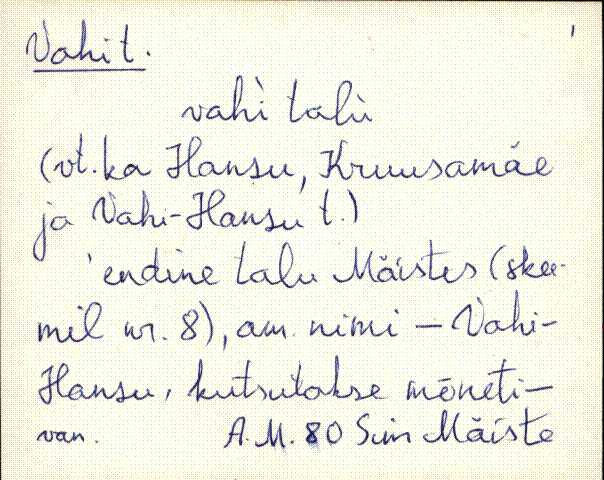 Vahi t.
vahì talù
(vt. ka Hansu, Kruusamäe
ja Vahi-Hansu t.)
'endine talu Mäistes (skee-
mil nr. 8), am. nimi – Vahi-
Hansu, kutsutakse mõneti –
van. A.M. 80 Suur Mäiste